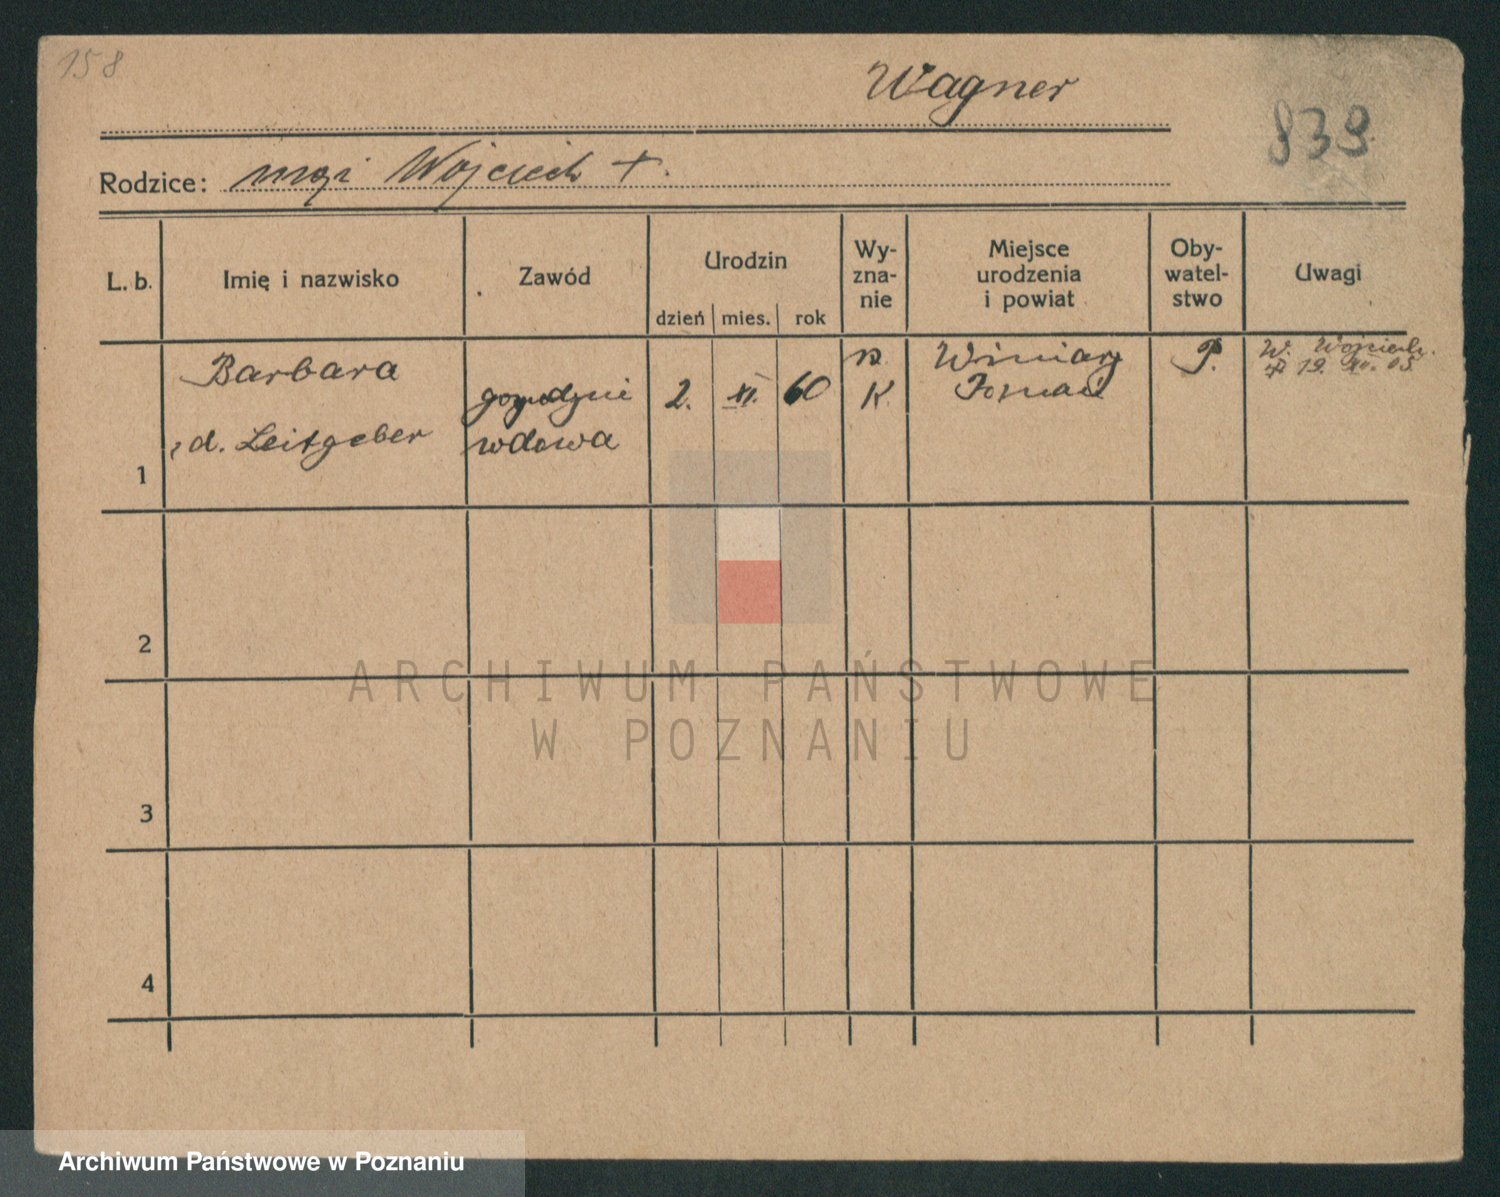 158
Wagner
839
Rodzice: mąż Wojciech +.
L. b.
Imię i nazwisko
Zawód
Urodzin
dzień mies. rok
Wy-
zna-
nie
Miejsce
urodzenia
i powiat
Oby-
watel-
stwo
Uwagi
1
Barbara
d. Leitgeber
wdowa
2. XI. 60
K.
Winiary
Poznań
P.
W. Wojciech.
19. XII. 05.
2
3
4
ARCHIWUM PAŃSTWOWE
W POZNANIU
Archiwum Państwowe w Poznaniu